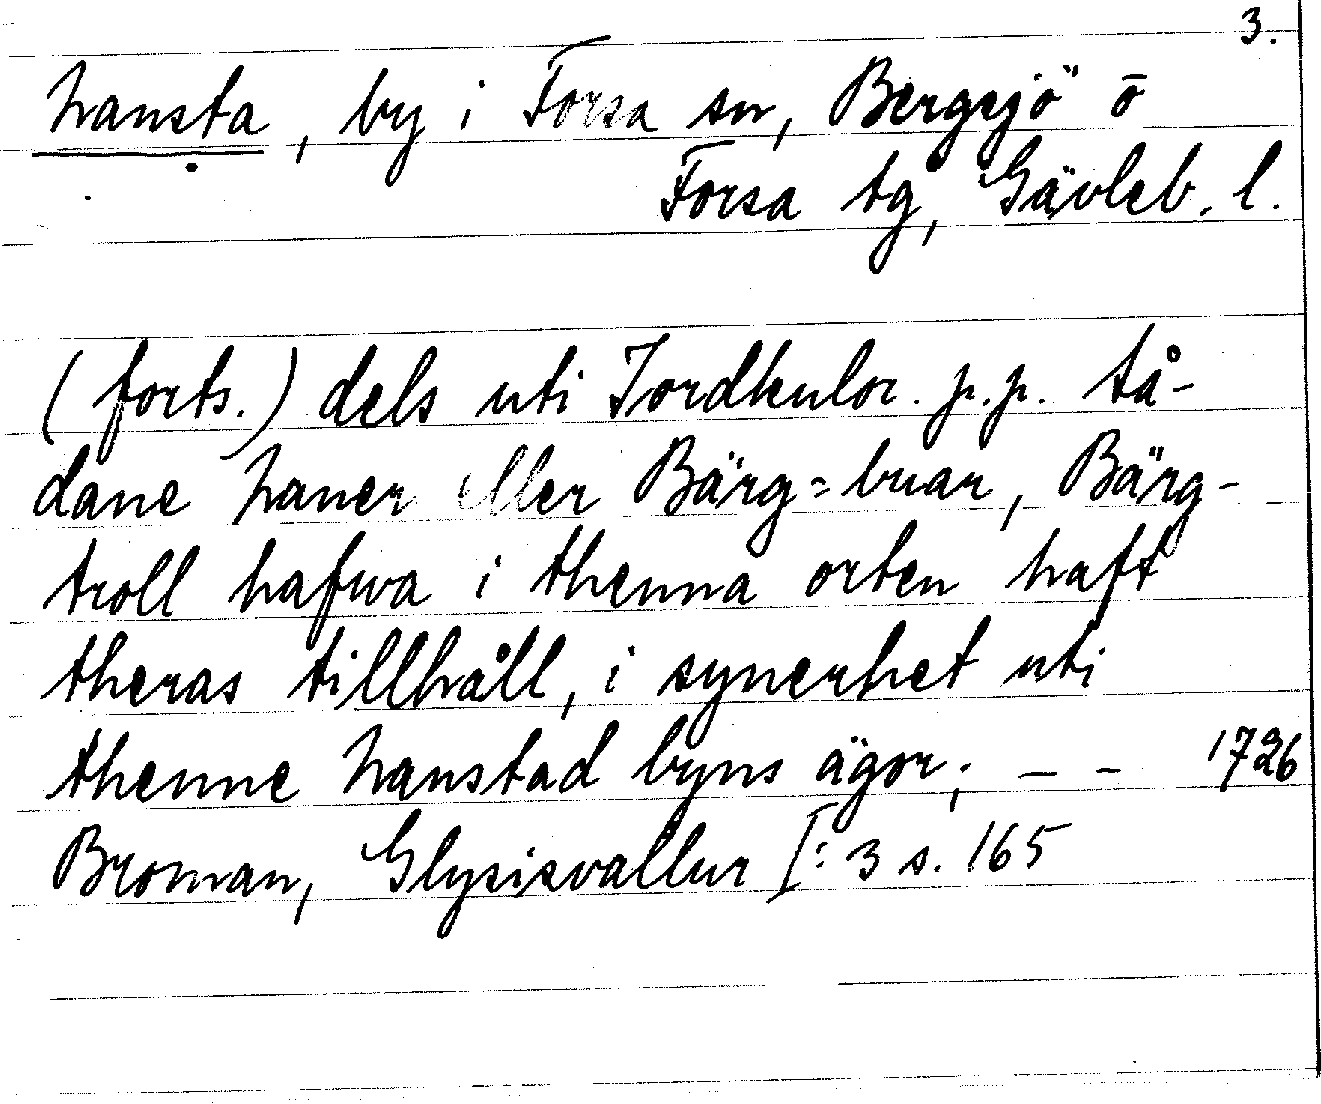 3.
Hansta, by i Forsa sn, Bergsjö o
Forsa tg, Gävleb. l.
(forts.) dels uti Jordkulor. p.p. så-
dane Haner eller Bärg=buar, Bärg-
troll hafwa i thenna orten haft
theras tillhåll, i synerhet uti
thenne Hanstad byns ägor; – – 1726
Broman, Glysisvallur I:3 s. 165